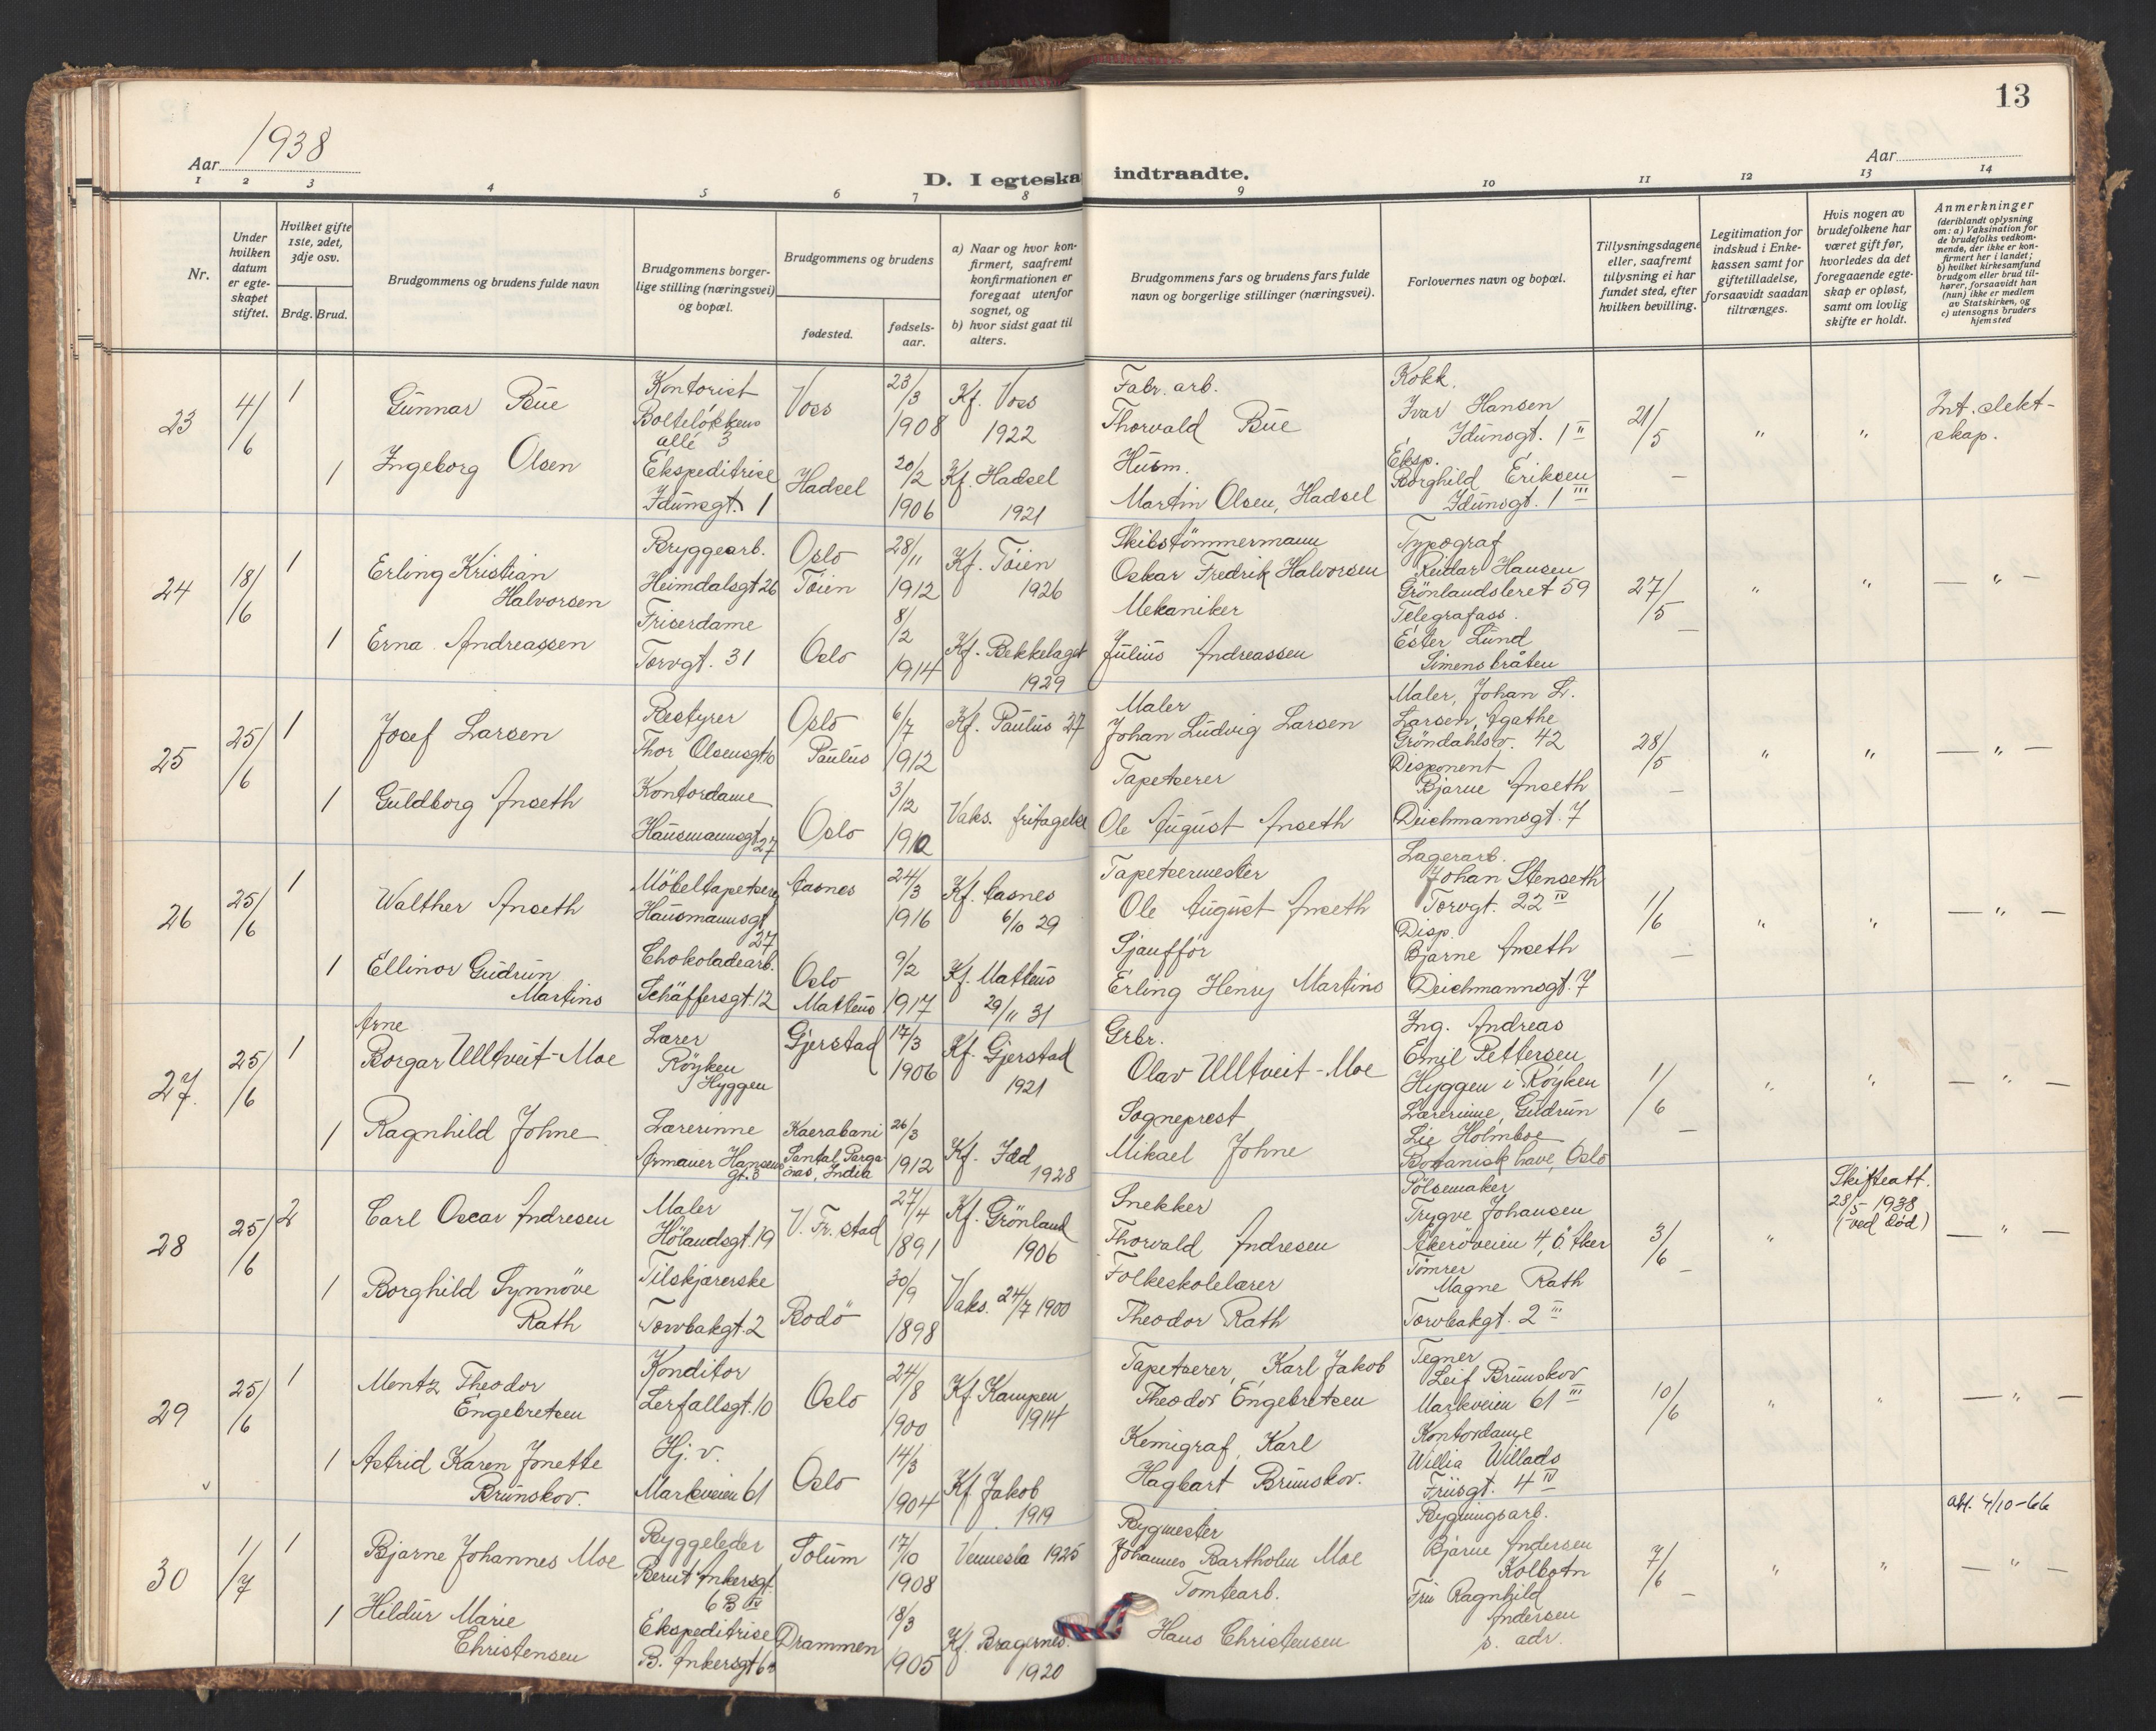 13
Aar 1938
Aar
D. I egteska indtraadte.
1 2 3 4 5 6 7 8 9 10 11 12 13 14
Nr.
Under hvilken datum er egte-skapet stiftet.
Hvilket gifte 1ste, 2det, 3dje osv.
Brdg. Brud.
Brudgommens og brudens fulde navn
Brudgommens borger-lige stilling (næringsvei) og bopæl.
Brudgommens og brudens
fødested.
fødsels-aar.
a) Naar og hvor kon-firmert, saafremt konfirmationen er foregaat utenfor sognet, og
b) hvor sidst gaat til alters.
Brudgommens fars og brudens fars fulde navn og borgerlige stillinger (næringsvei).
Forlovernes navn og bopæl.
Tillysningsdagene eller, saafremt tillysning ei har fundet sted, efter hvilken bevilling.
Legitimation for indskud i Enke-kassen samt for giftetilladelse, forsaavidt saadan tiltrænges.
Hvis nogen av brudefolkene har været gift før, hvorledes da det foregaaende egte-skap er opløst, samt om lovlig skifte er holdt.
Anmerkninger
(deriblandt oplysning om: a) Vaksination for de brudefolks vedkom-mende, der ikke er kon-firmert her i landet; b) hvilket kirkesamfund brudgom eller brud til-hører, forsaavidt han (hun) ikke er medlem av Statskirken, og c) utensogns bruders hjemsted
23 4/6 1 Gunnar Bue Kontorist Bolteløkkens allé 3 Voss 23/3 1908 Kf. Voss 1922 Fabr. arb. Thorvald Bue Kokk. Ivar Hansen Idunsgt. 1 II 21/5 " " Int. slekt-skap.
1 Ingeborg Olsen Ekspeditrise Idunsgt. 1 Hadsel 20/2 1906 Kf. Hadsel 1921 Husm. Martin Olsen, Hadsel Eksp. Borghild Eriksen Idunsgt. 1 III —
24 18/6 1 Erling Kristian Halvorsen Bryggearb. Heimdalsgt 26 Oslo Töien 28/11 1912 Kf. Töien 1926 Skibstømmermann Oskar Fredrik Halvorsen Typograf Reidar Hansen Grönlandsleret 59 27/5 " " — " —
1 Erna Andreassen Friserdame Torvgt. 31 Oslo 8/2 1914 Kf. Bekkelaget 1929 Mekaniker Julius Andreassen Telegrafass. Ester Lund Simensbråten —
25 25/6 1 Josef Larsen Bestyrer Thor Olsensgt 10 Oslo Paulus 6/7 1912 Kf. Paulus 27 Maler Johan Ludvig Larsen Maler, Johan L. Larsen, Agathe Gröndahlsv. 42 28/5 " " — " —
1 Guldborg Anseth Kontordame Hausmannsgt 27 Oslo 3/12 1910 Vaks. fritagelse Tapetserer Ole August Anseth Disponent Bjarne Anseth Deichmannsgt. 7 —
26 25/6 1 Walther Anseth Möbeltapetserer Hausmannsgt 27 Aasnes 24/3 1916 Kf. Aasnes 6/10 29 Tapetsermester Ole August Anseth Lagerarb. Johan Stenseth Torvgt. 22 IV 1/6 " " — " —
1 Ellinor Gudrun Martins Chokoladearb. Schäffersgt. 12 Oslo Matteus 9/2 1917 Kf. Matteus 29/11 31 Sjaufför Erling Henry Martins Disp. Bjarne Anseth Deichmannsgt. 7 —
27. 25/6 1 Arne Borgar Ulltveit-Moe Lærer Röyken Hyggen Gjerstad 17/3 1906 Kf. Gjerstad 1921 Grbr. Olav Ulltveit-Moe Ing. Andreas Emil Pettersen Hyggen i Röyken 1/6 " " — " —
1 Ragnhild Johne Lærerinne Armauer Hansens gt. 3 Kaerabani Santal Parga-nas, India 26/3 1912 Kf. Idd 1928 Sogneprest Mikael Johne Lærerinne, Gudrun Lie Holmboe Botanisk have, Oslo —
28 25/6 2 Carl Oscar Andresen Maler Hölandsgt. 19 V. Fr. stad 27/4 1891 Kf. Grönland 1906 Snekker Thorvald Andresen Pölsemaker Trygve Johansen Akersveien 4, Ö. Aker 3/6 " Skifteatt. 23/5-1938 (ved död) — " —
1 Borghild Synnöve Rath Tilskjærerske Torvbakgt. 2 Bodö 30/9 1898 Vaks. 24/7 1900 Folkeskolelærer Theodor Rath Tömrer Magne Rath Torvbakgt. 2 III —
29 25/6 1 Mentz Theodor Engebretsen Konditor Lerfallsgt. 10 Oslo 24/8 1900 Kf. Kampen 1914 Tapetserer, Karl Jakob Theodor Engebretsen Tegner Leif Brunskov Markveien 61 III 10/6 " " — " —
1 Astrid Karen Jonette Brunskov. Hj. v. Markveien 61 Oslo 14/3 1904 Kf. Jakob 1919 Kemigraf, Karl Hagbart Brunskov. Kontordame Willia Willads Friisgt. 4 IV
30 1/7 1 Bjarne Johannes Moe Byggeleder Bernt Ankersgt. 6 B IV Solum 17/10 1908 Vennesla 1925 Bygmester Johannes Bartholm Moe Bygningsarb. Bjarne Andersen Kolbotn 7/6 " " att. 4/10-66 — " —
1 Hildur Marie Christensen Ekspeditrise B. Ankersgt 6 B Drammen 18/3 1905 Kf. Bragernes. 1920 Tomtearb. Hans Christensen Fru Ragnhild Andersen s. adr. —